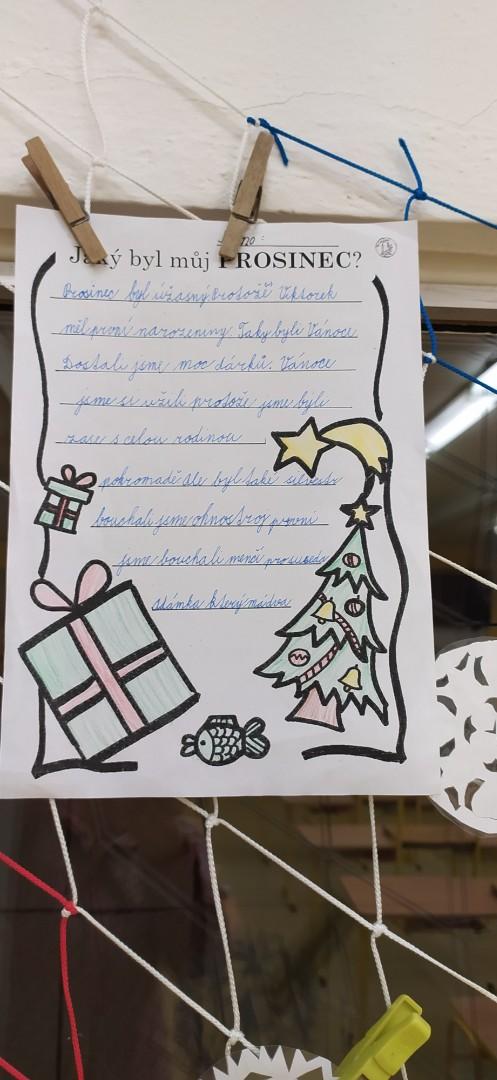 Jaký byl můj PROSINEC?
Prosinec byl úžasný Protožě Viktorek
měl první narozeniny. Taky byli Vánoce
Dostali jsme moc dárků. Vánoce
jsme si užili protože jsme byli
zase s celou rodinou
pohromadě ale byl také silvestr
bouchali jsme ohnostroj prvnní
jsme bouchali menčí pro suseda
Adámka který má dva